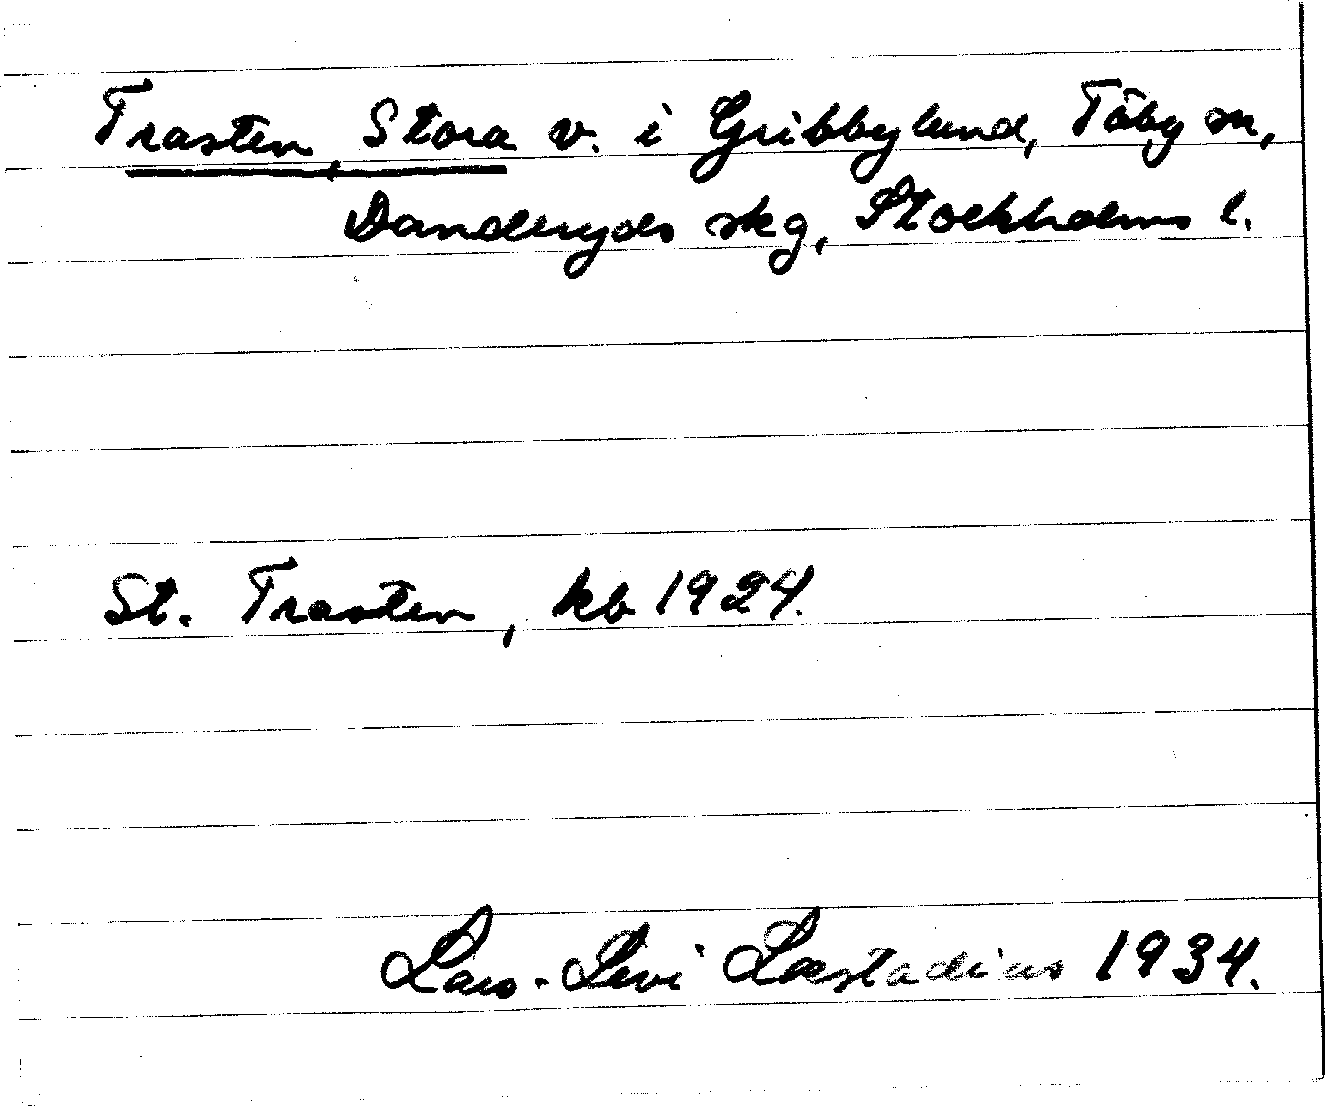 Trasten, Stora v. i Gribbylund, Täby sn,
Danderyds skg, Stockholms l.
St. Trasten, kb 1924.
Lars-Levi Læstadius 1934.